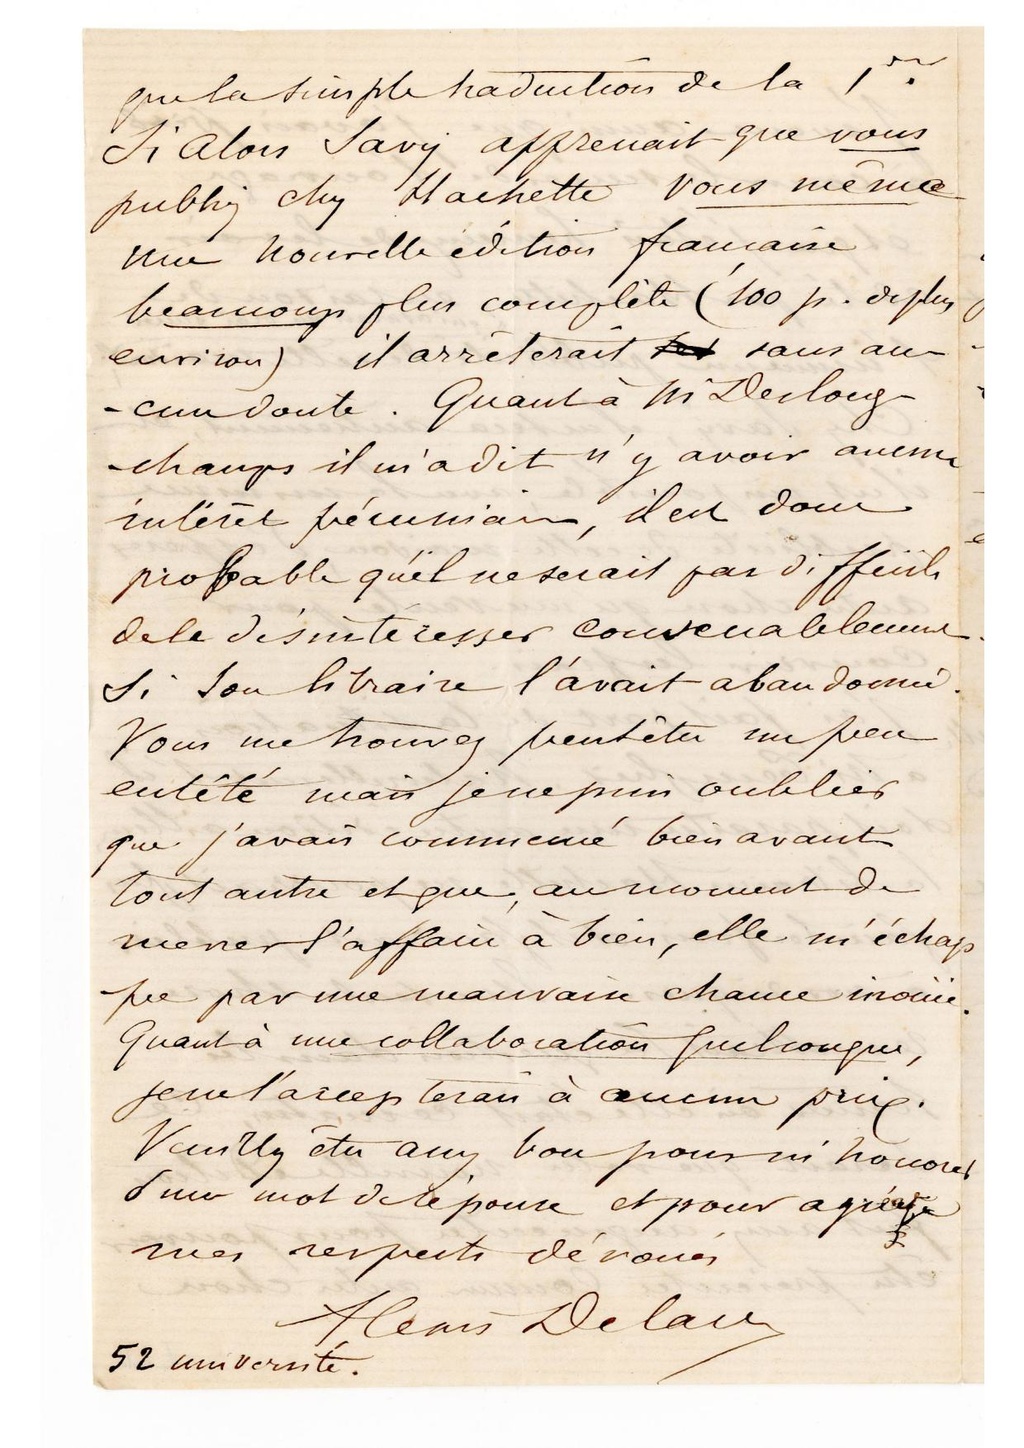 que la simple traduction de la 1re.
Si alors Savy apprenait que vous
publiez chez Hachette vous même
une nouvelle édition francaise
beaucoup plus complète (100 p. de plus
environ) il arrêterait sans au-
-cun doute. Quant à Mr Deslong-
-champs il m'a dit n'y avoir aucun
intérêt pécuniaire, il est donc
probable qu'il ne serait pas difficile
de le désintéresser convenablement
si son libraire l'avait abandonné.
Vous me trouvez peut être un peu
entêté mais je ne puis oublier
que j'avais commencé bien avant
tout autre et que, au moment de
mener l'affaire à bien, elle m'échap
-pe par une mauvaise chance inouie.
Quant à une collaboration quelconque,
je ne l'accepterais à aucun prix.
Veuillez être assez bon pour m'honorer
d'un mot de réponse et pour agréer
mes respects dévoués
Delaire
52 université.